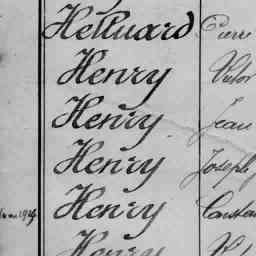 Helluard Pierre
Henry Victor
Henry Jean
Henry Joseph
Henry
Henry